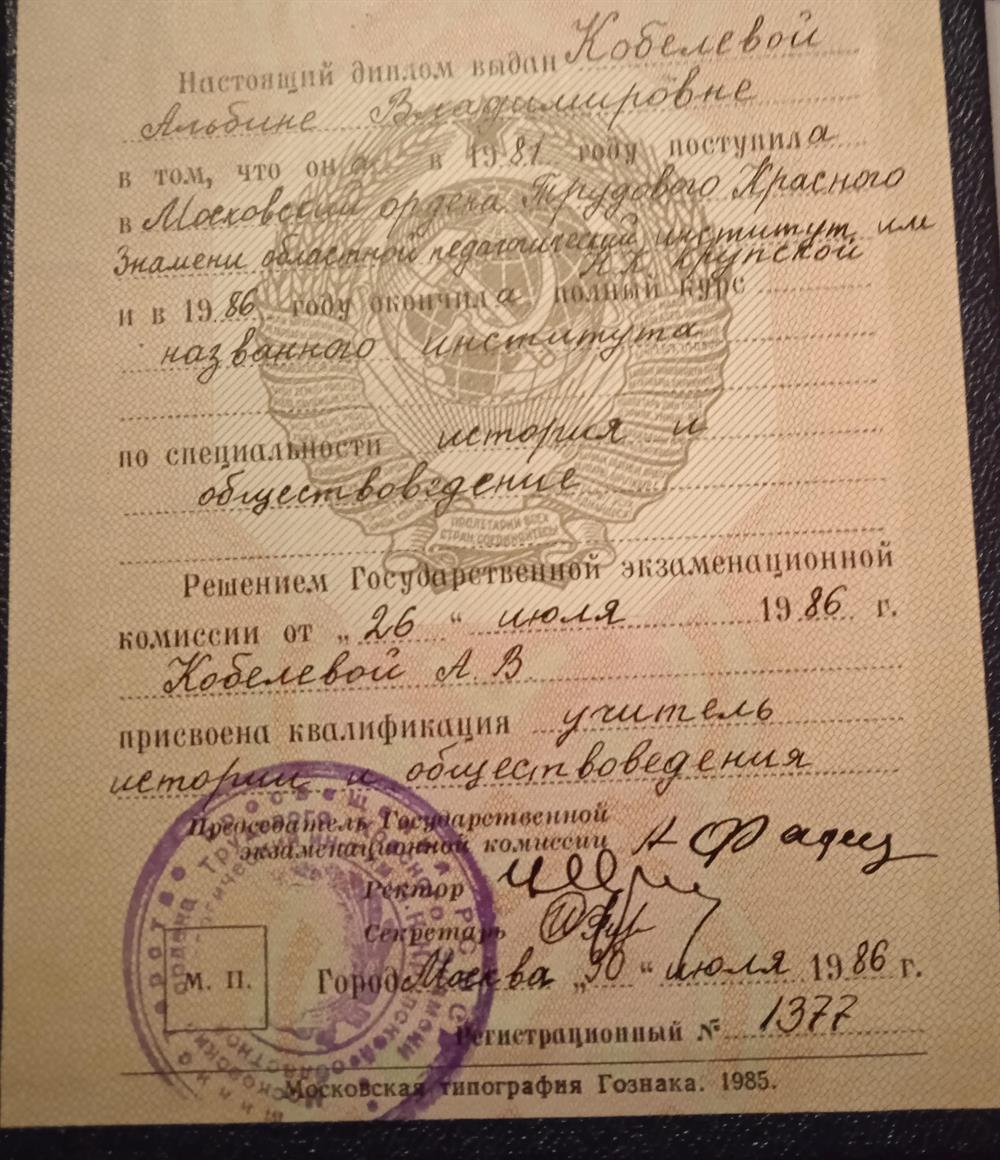 Настоящий диплом выдан Кобелевой
Альбине Владимировне
в том, что она в 1981 году поступила
в Московский ордена Трудового Красного
Знамени областной педагогический институт им
Н.К. Крупской
и в 1986 году окончила полный курс
названного института
по специальности история и
обществоведение
ПРОЛЕТАРИИ ВСЕХ
СТРАН, СОЕДИНЯЙТЕСЬ!
Решением Государственной экзаменационной
комиссии от „26“ июля 1986 г.
Кобелевой А. В.
присвоена квалификация учитель
истории и обществоведения
Председатель Государственной
экзаменационной комиссии
Ректор
Секретарь
М. П. Город Москва „30“ июля 1986 г.
Регистрационный № 1377
Московская типография Гознака. 1985.